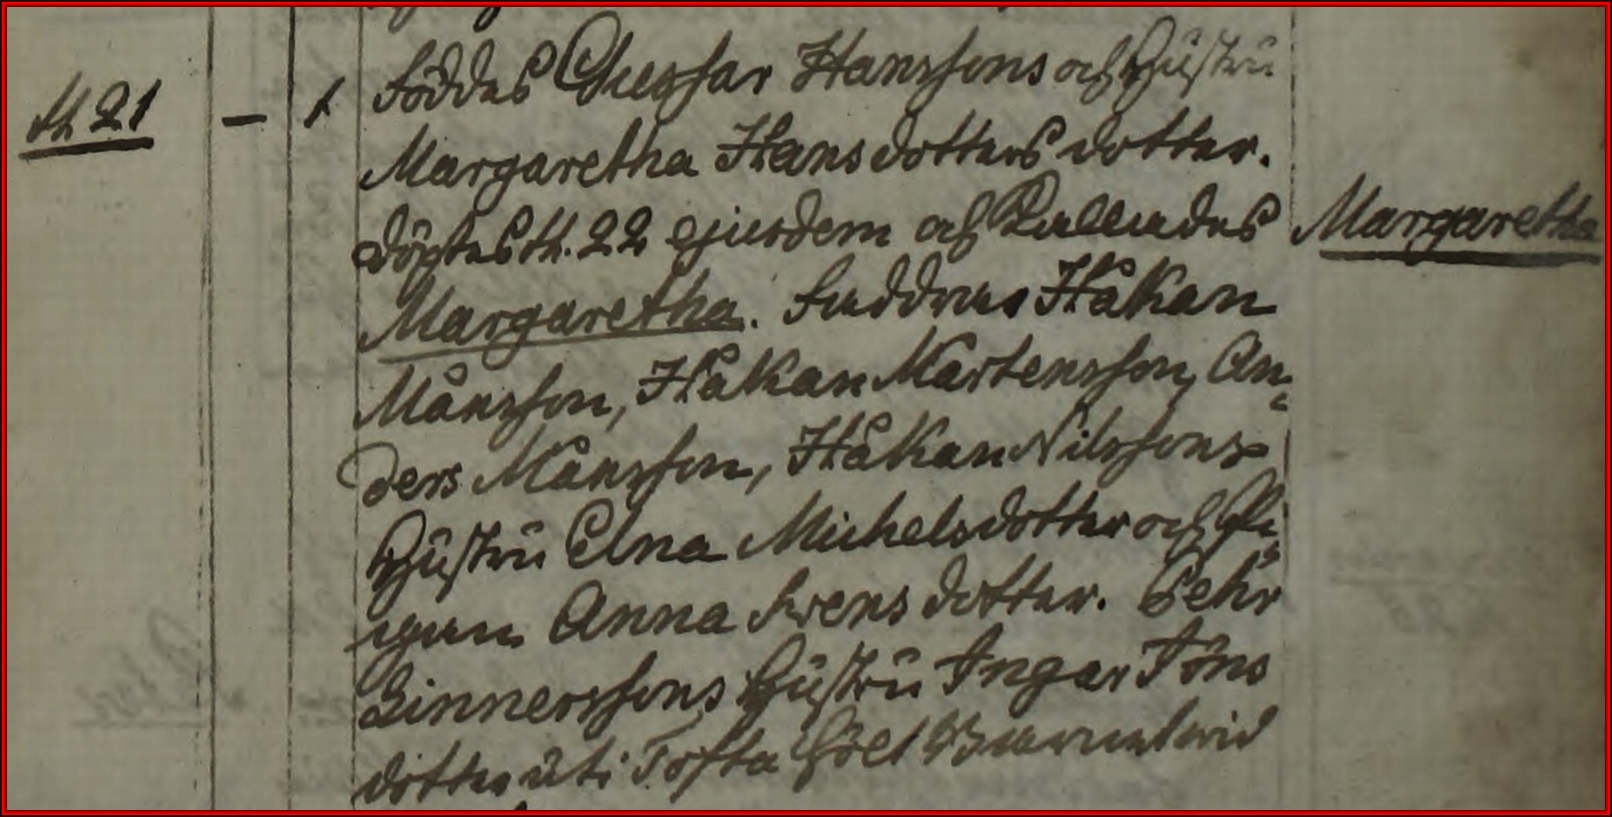 th 21 — 1 föddes Gussar Hanssons och Hüstrü
Margaretha Hansdotters dotter.
döptes th. 22 ejusdem och Kallades Margaretha
Margaretha. Faddrar Håkan
Månsson, Håkan Mårtensson, An=
ders Månsson, Håkan Nilssons
Hüstrü Elna Michelsdotter och Pi=
gan Anna Svensdotter. Pehr
Ginnerssons Hüstrü Ingar Jöns
dotter uti Tofta höll Barnet wid